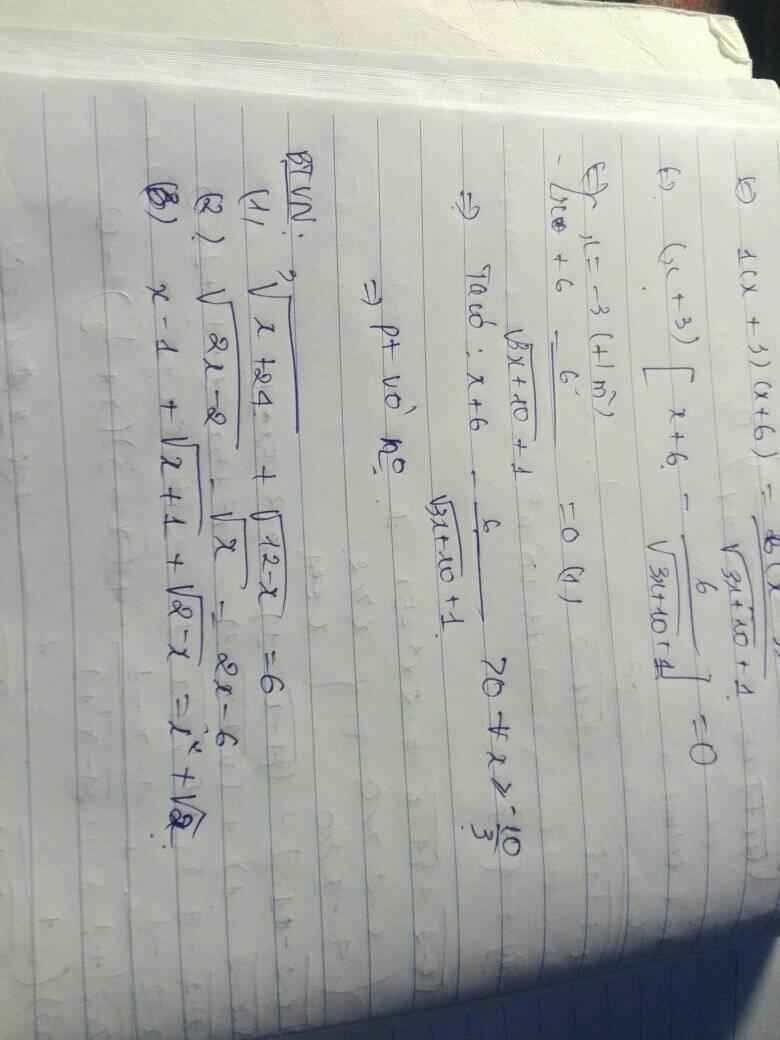 1(x + 3)(x+6) = 6(x / √(3x+10) + 1
(x + 3) [ x+6 - 6/(√(3x+10) + 1) ] = 0
x = -3 (t/m)
x + 6 - 6/(√(3x+10) + 1) = 0 (1)
⇒ Ta có: x+6 - 6/(√(3x+10) + 1) >0 ∀ x ≥ -10/3
⇒ pt vô nº
BTVN:
(1) ³√(x+24) + √(12-x) = 6
(2) √(2x-2) - √x = 2x-6
(3) x-1 + √(x+1) + √(2-x) = x² + √2